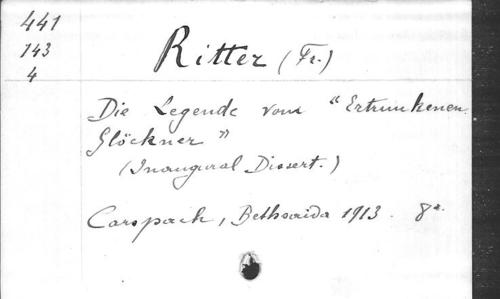 441
143
4
Ritter (Fr.)
Die Legende vom "Ertrunkenen
Glöckner"
(Inaugural Dissert.)
Carspach, Bethsaida 1913. 8º.